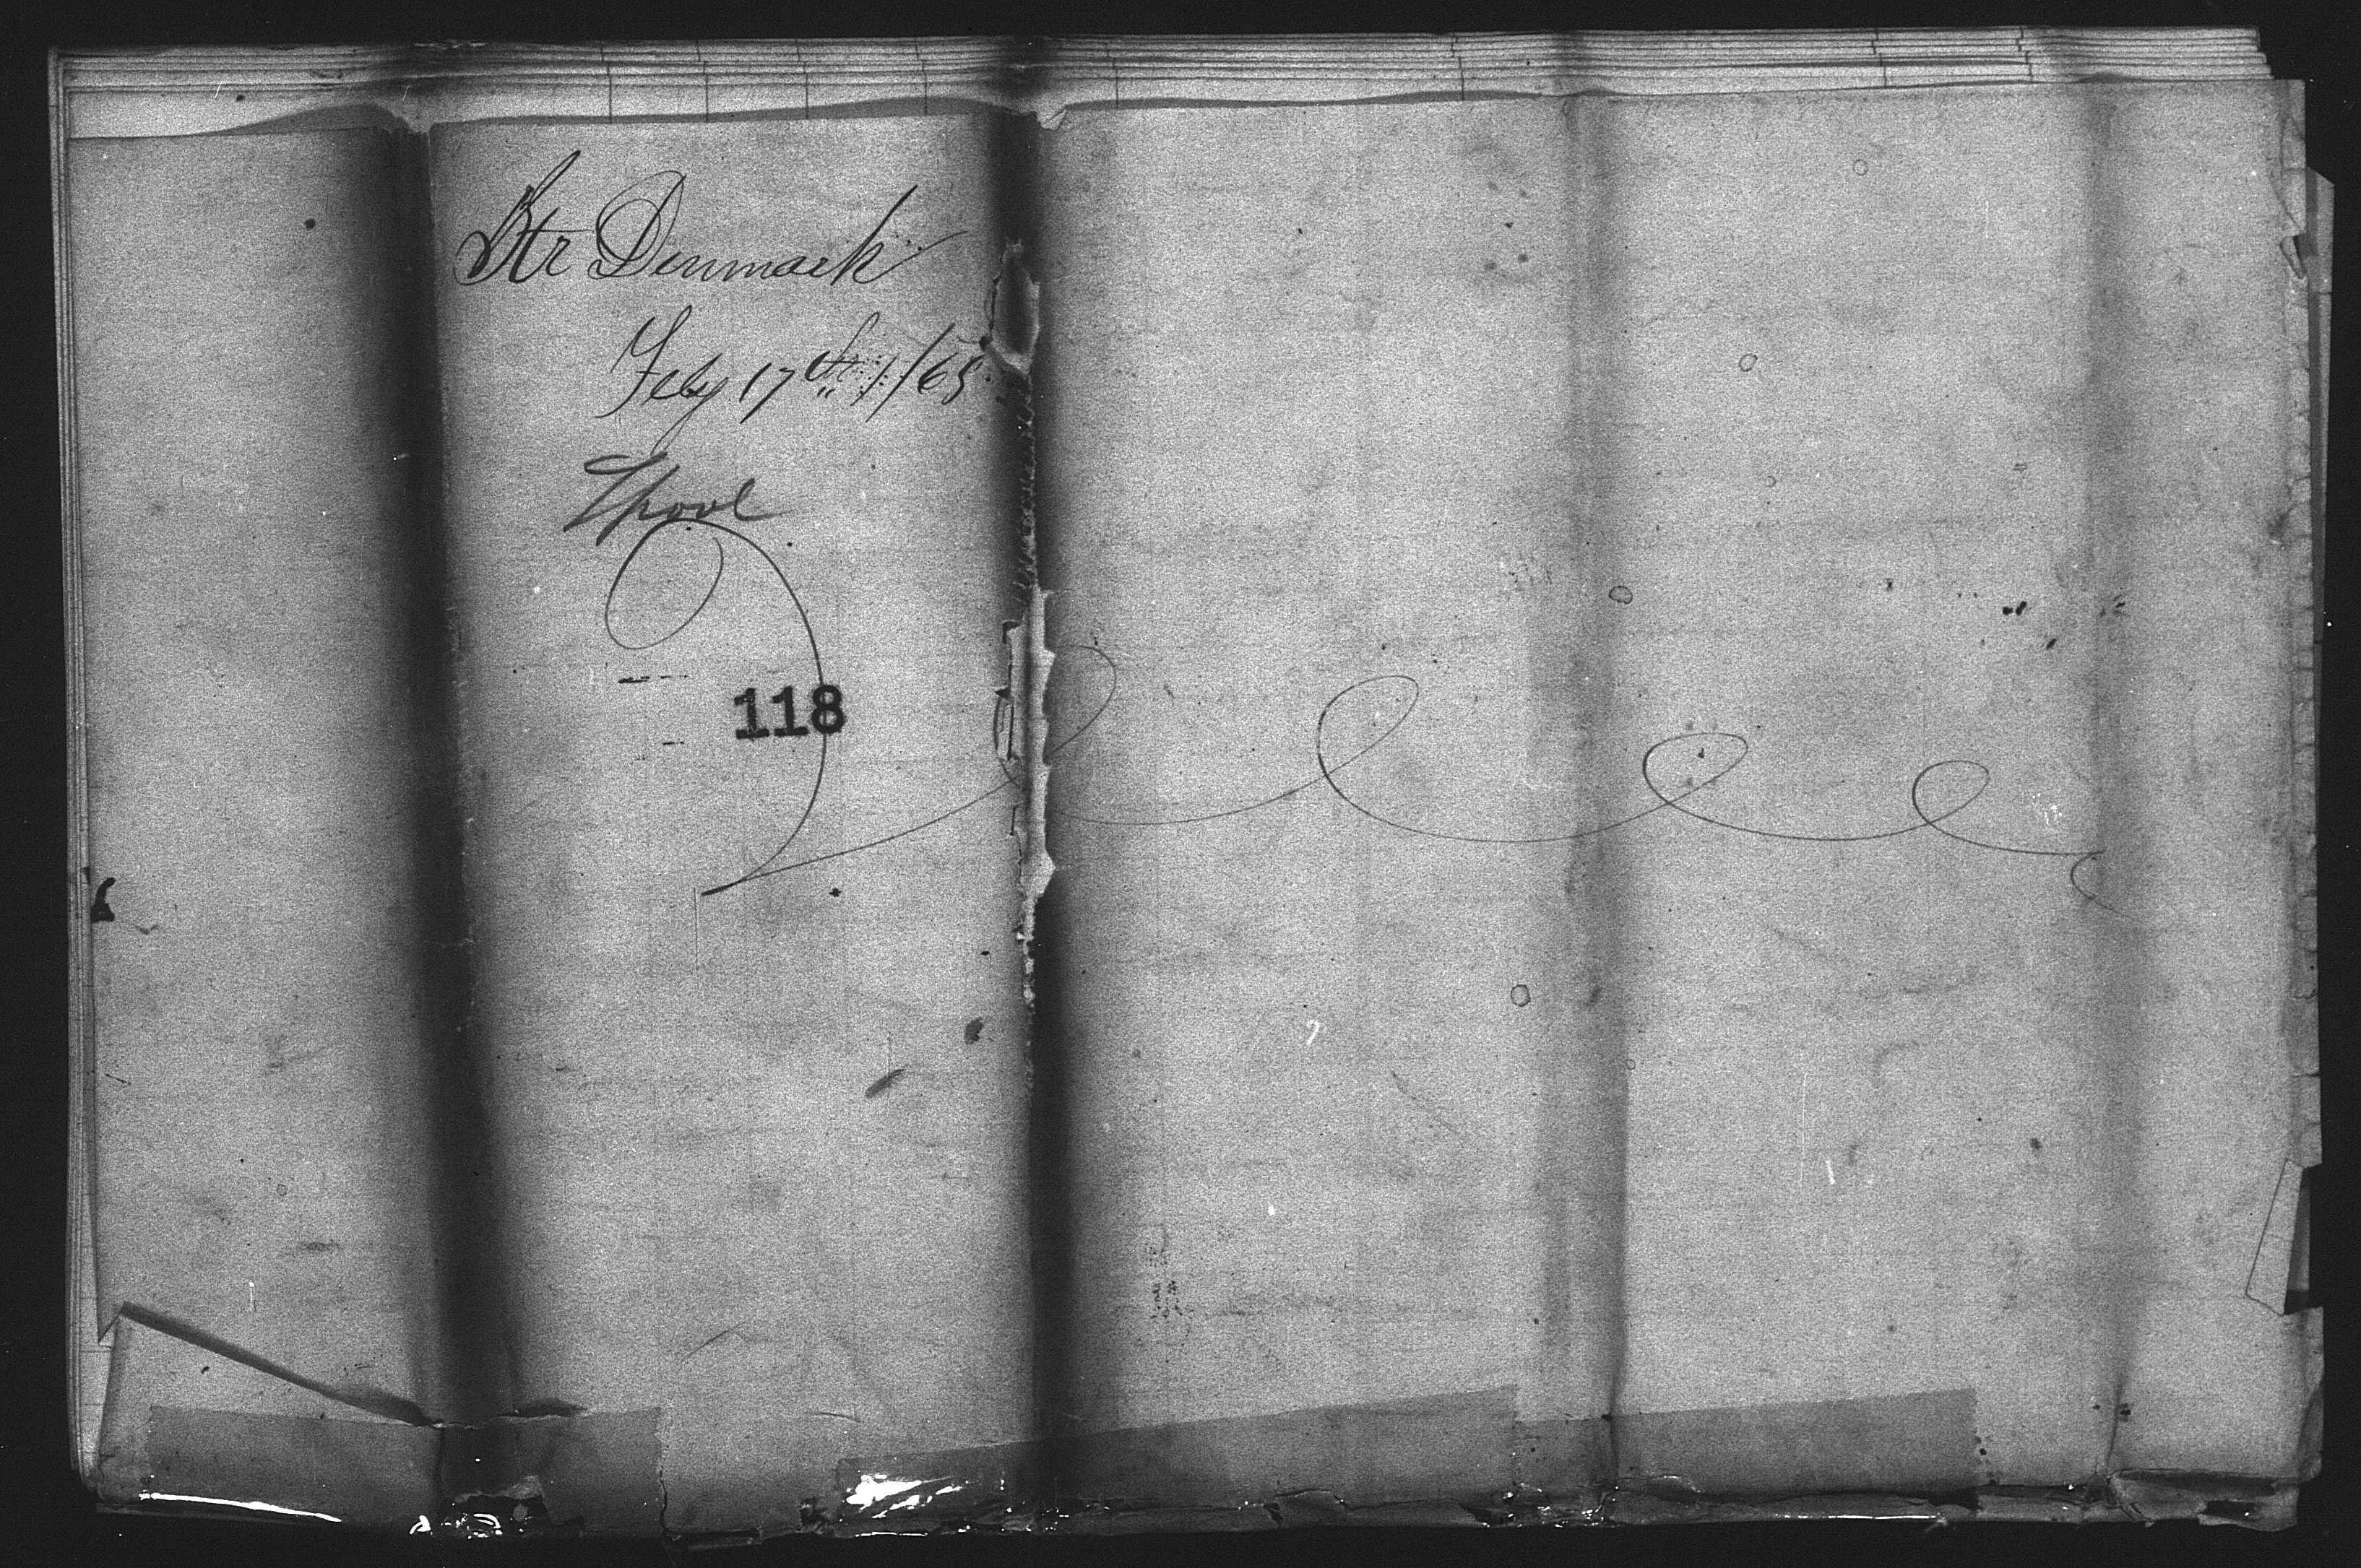 Str Denmark
Feby 17th /65
Lpool
118